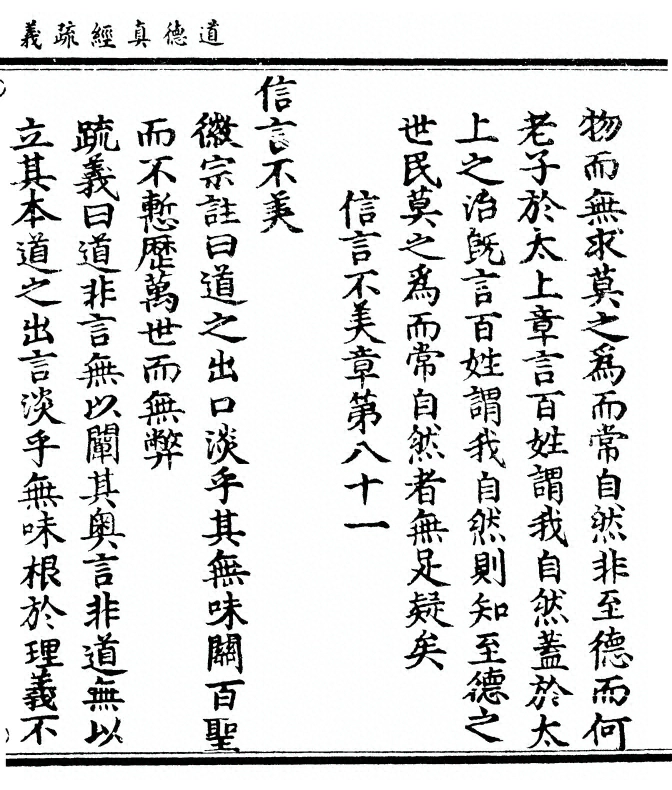 道德真經疏義
物而無求莫之為而常自然非至德而何
老子於太上章言百姓謂我自然蓋於太
上之治既言百姓謂我自然則知至德之
世民莫之為而常自然者無足疑矣
信言不美章第八十一
信言不美
徽宗註曰道之出口淡乎其無味關百聖
而不慙歷萬世而無弊
疏義曰道非言無以闡其奧言非道無以
立其本道之出言淡乎無味根於理義不